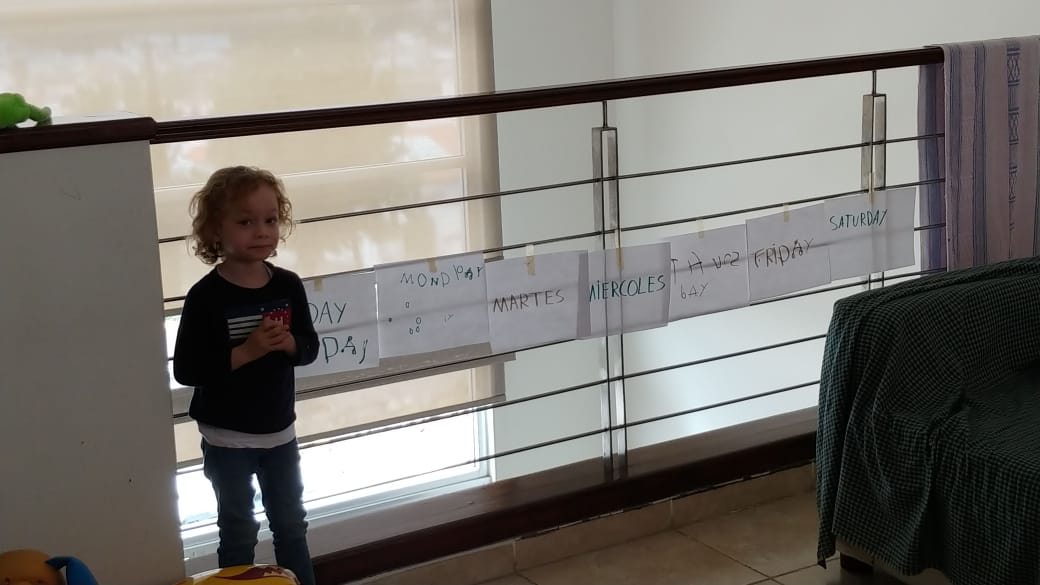 DAY
DAY
MONDAY
MARTES
MIERCOLES
THUS
DAY
FRIDAY
SATURDAY